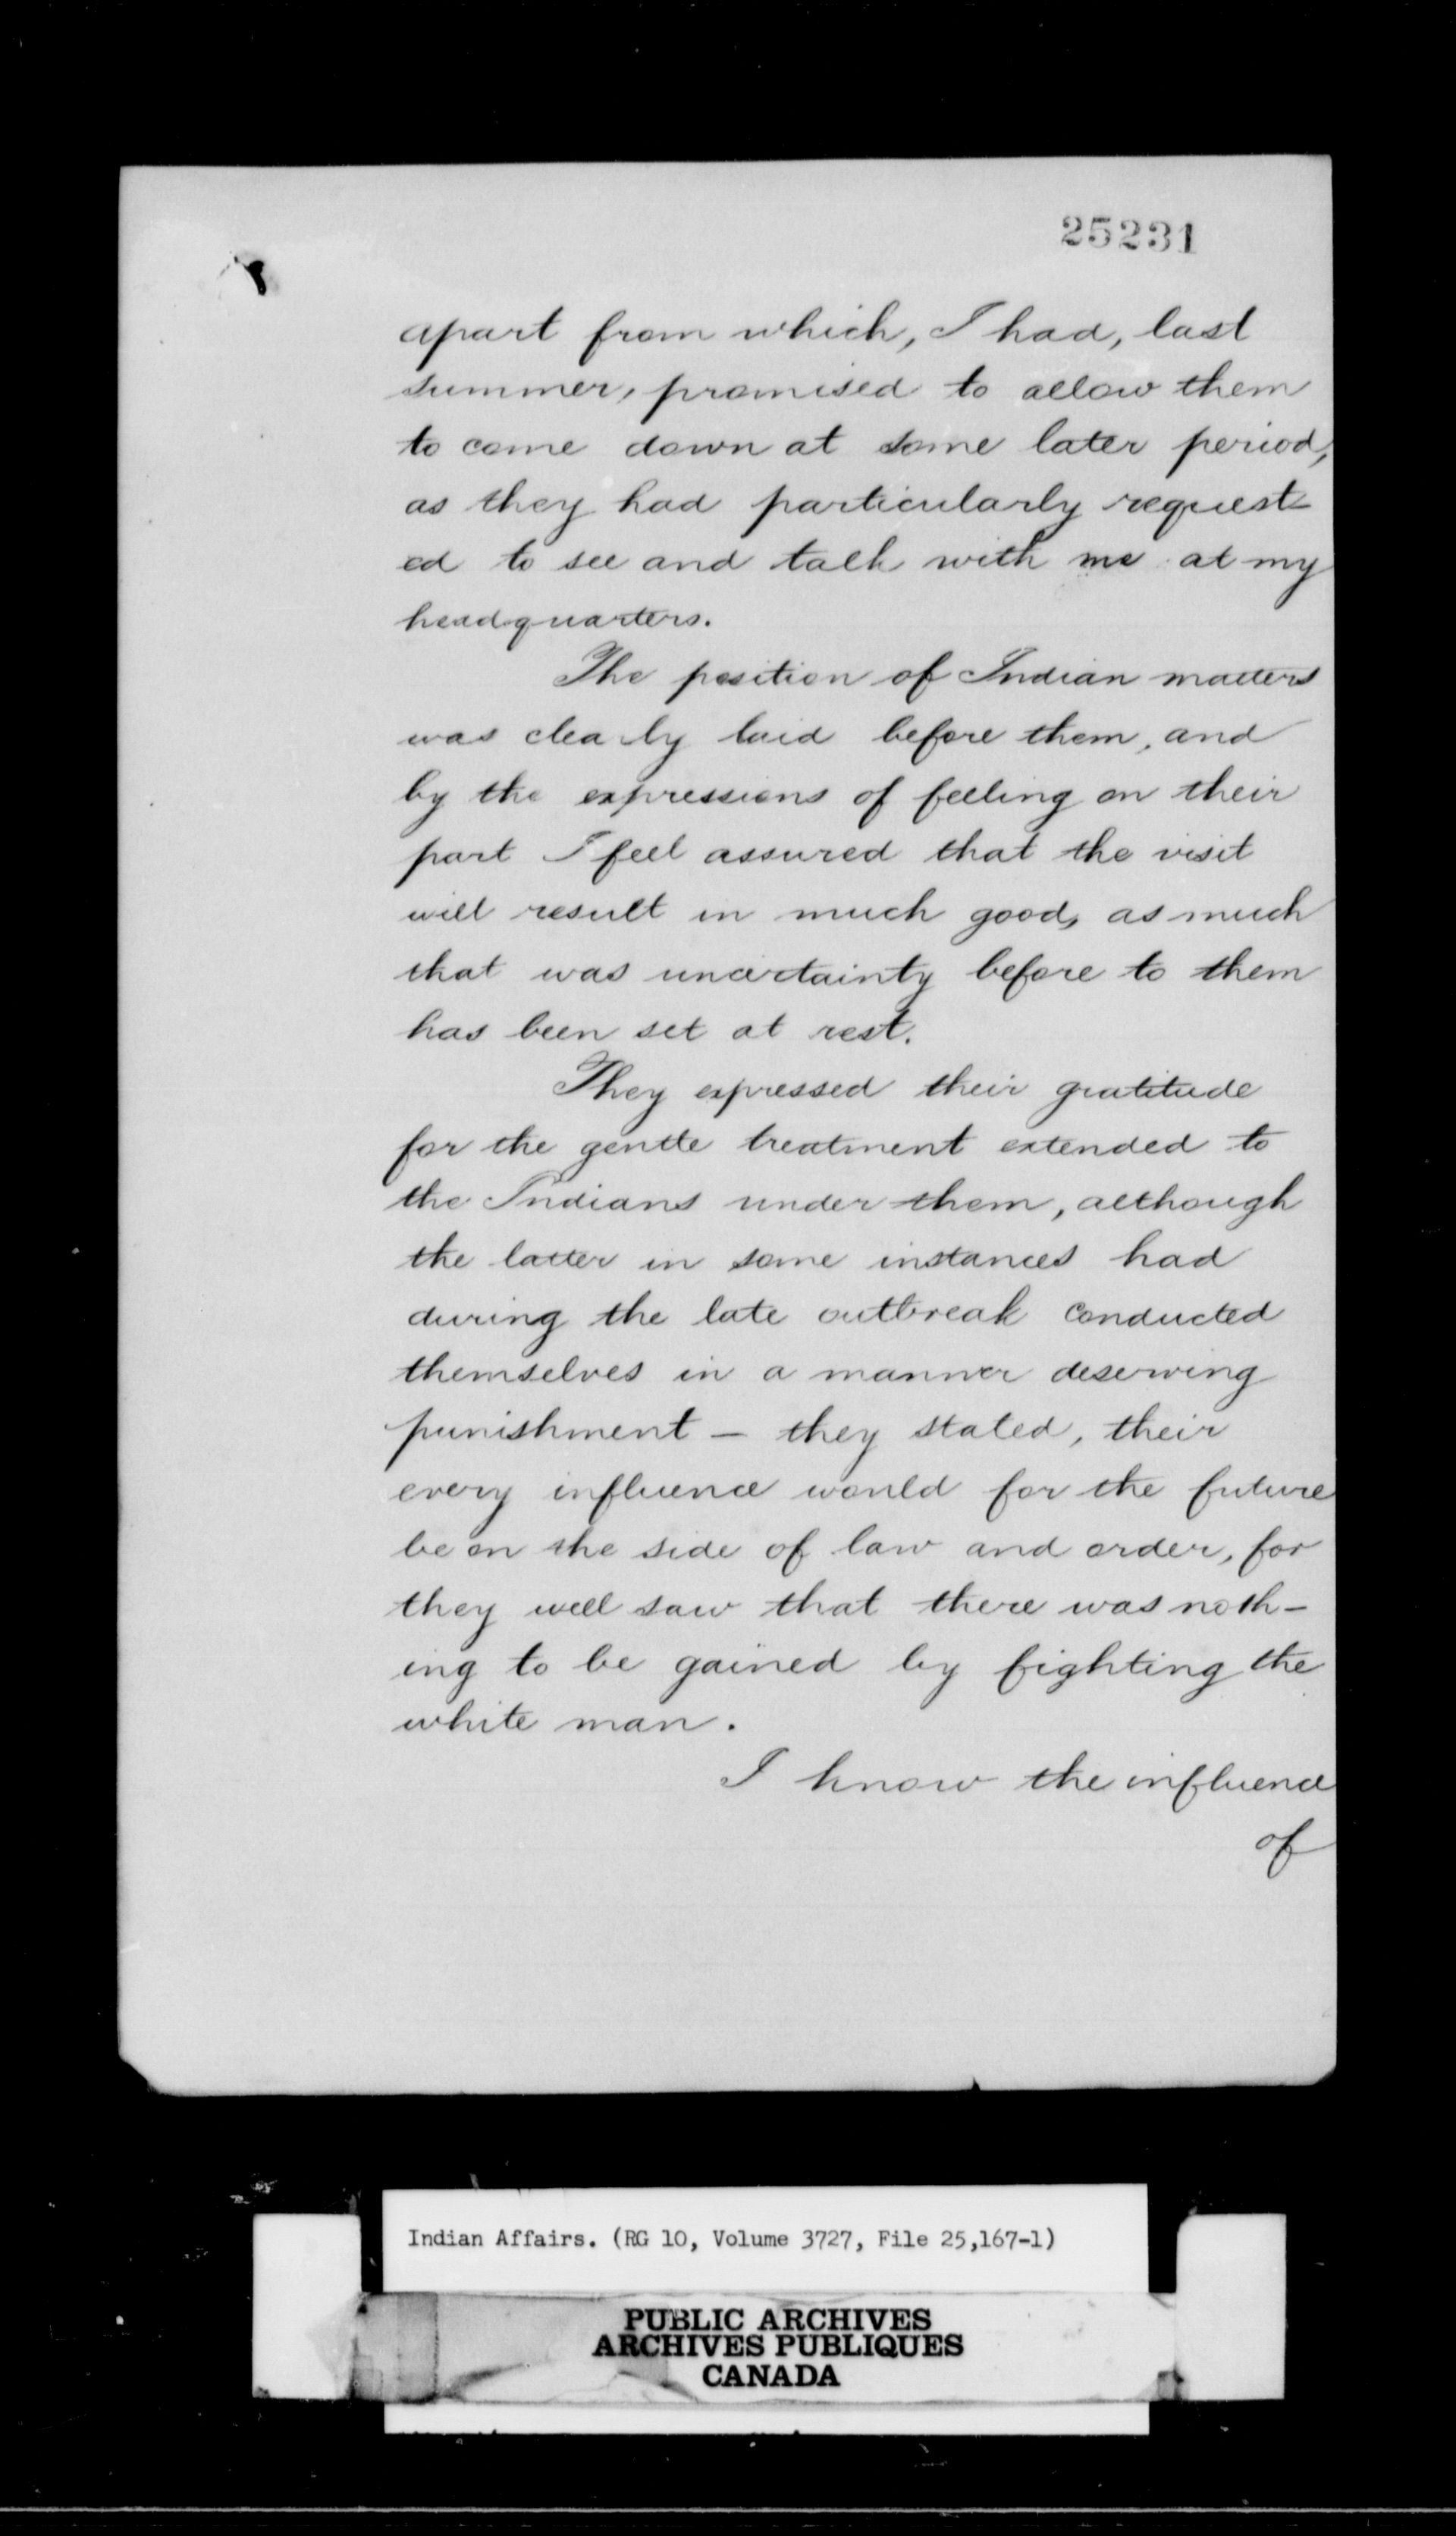 25231
apart from which, I had, last
summer, promised to allow them
to come down at some later period,
as they had particularly request-
ed to see and talk with me at my
headquarters.
The position of Indian matters
was clearly laid before them, and
by the expressions of feeling on their
part I feel assured that the visit
will result in much good, as much
that was uncertainty before to them
has been set at rest.
They expressed their gratitude
for the gentle treatment extended to
the Indians under them, although
the latter in some instances had
during the late outbreak conducted
themselves in a manner deserving
punishment - they stated, their
every influence would for the future
be on the side of law and order, for
they well saw that there was noth-
ing to be gained by fighting the
white man.
I know the influence
of
Indian Affairs. (RG 10, Volume 3727, File 25,167-1)
PUBLIC ARCHIVES
ARCHIVES PUBLIQUES
CANADA